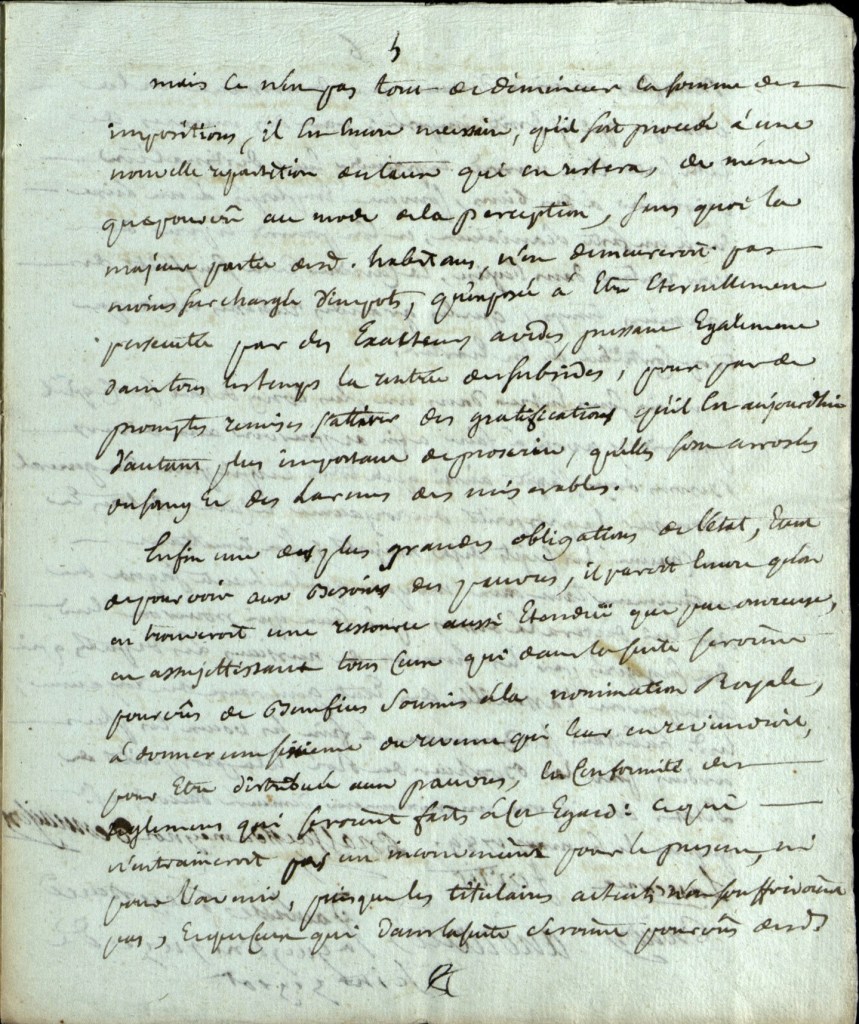 5
mais ce n'est pas tout de diminuer la somme des
impositions, il est encore necessaire, qu'il soit procedé à une
nouvelle repartition de celle qui en restera, de même
que pourvû au mode de la perception, sans quoi la
majeure partie desd. habitans, n'en demeureroit pas
moins surchargée d'impots, qu'exposée à Etre Eternellement
persecutée par des Exacteurs avides, pressant Egalement
dans tous les temps la rentrée des subsides, pour par de
promptes remises s'attirer des gratifications qu'il est aujourdhui
d'autant plus important de proscrire, qu'elles sont arrosées
du sang et des larmes des misérables.
Enfin une des plus grandes obligations de l'état, Etant
de pourvoir aux Besoins des pauvres, il paroit Encore qu'on
en trouveroit une ressource aussi Etendüe que peu onereuse,
en assujettissant tous Ceux qui dans la suite seroient
pourvûs de Benefices soumis à la nomination Royale,
à donner un sixieme du revenu qui leur en reviendroit,
pour Etre distribuée aux pauvres, En Conformité des
reglemens qui seroient faits à Cet Egard: ce qui
n'entraineroit pas un inconvenient pour le present, ni
pour l'avenir, puisque les titulaires actuels n'en souffriroient
pas, Et que Ceux qui dans la suite seroient pourvûs desds